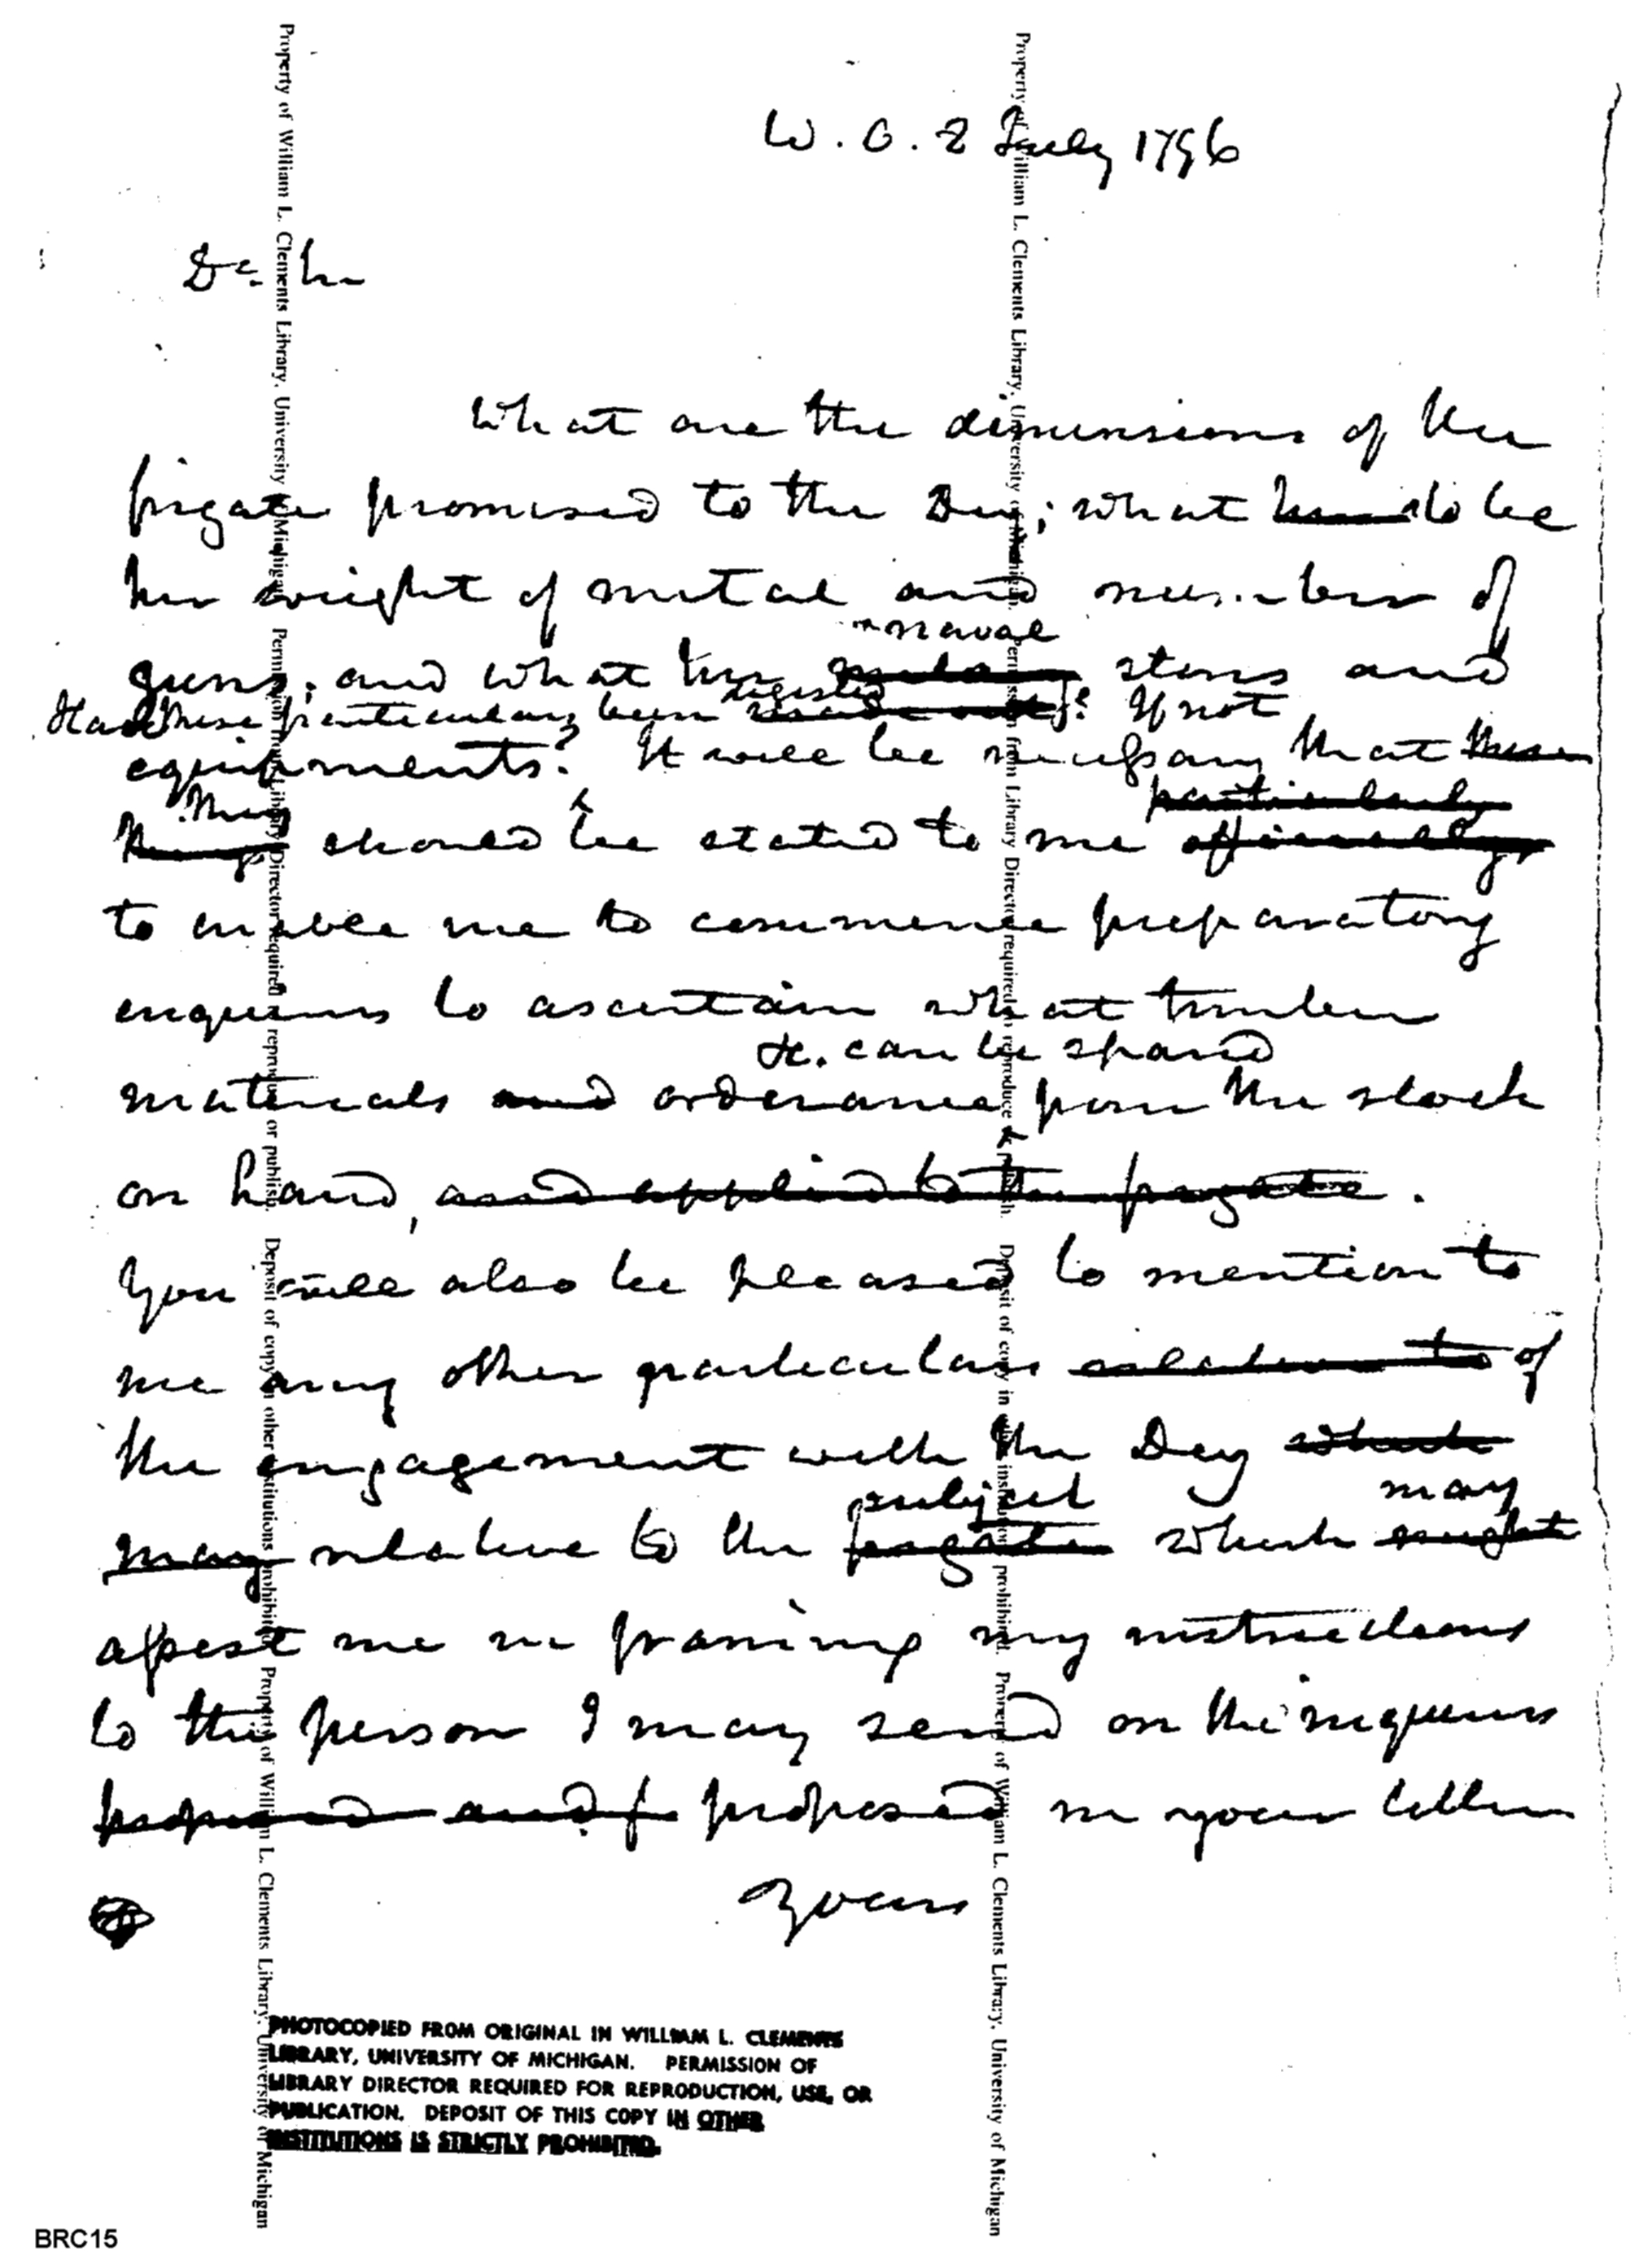 W. O. 2 July 1796
Dr. Sir
What are the dimensions of the
frigate promised to the Dey; what to be
her weight of metal and number of
naval
guns; and what her stores and
Have these particulars been digested? If not
equipments? It will be necessary that these
particularly
they should be stated to me officially,
to enable me to commence preparatory
enquiries to ascertain what timber
&c. can be spared
materials and ordnance from the stock
on hand, and applied to the frigate.
You will also be pleased to mention to
me any other particulars relative to of
the engagement with the Dey which
subject may
may relative to the frigate which might
assist me in framing my instructions
to the person I may send on the inquiries
proposed and f proposed in your letter
Yours
PHOTOCOPIED FROM ORIGINAL IN WILLIAM L. CLEMENTS
LIBRARY, UNIVERSITY OF MICHIGAN. PERMISSION OF
LIBRARY DIRECTOR REQUIRED FOR REPRODUCTION, USE, OR
PUBLICATION. DEPOSIT OF THIS COPY IN OTHER
INSTITUTIONS IS STRICTLY PROHIBITED.
Property of William L. Clements Library, University of Michigan. Permission from Library Director required to reproduce or publish. Deposit of copy in other institutions prohibited. Property of William L. Clements Library, University of Michigan
Property of William L. Clements Library, University of Michigan. Permission from Library Director required to reproduce or publish. Deposit of copy in other institutions prohibited. Property of William L. Clements Library, University of Michigan
BRC15